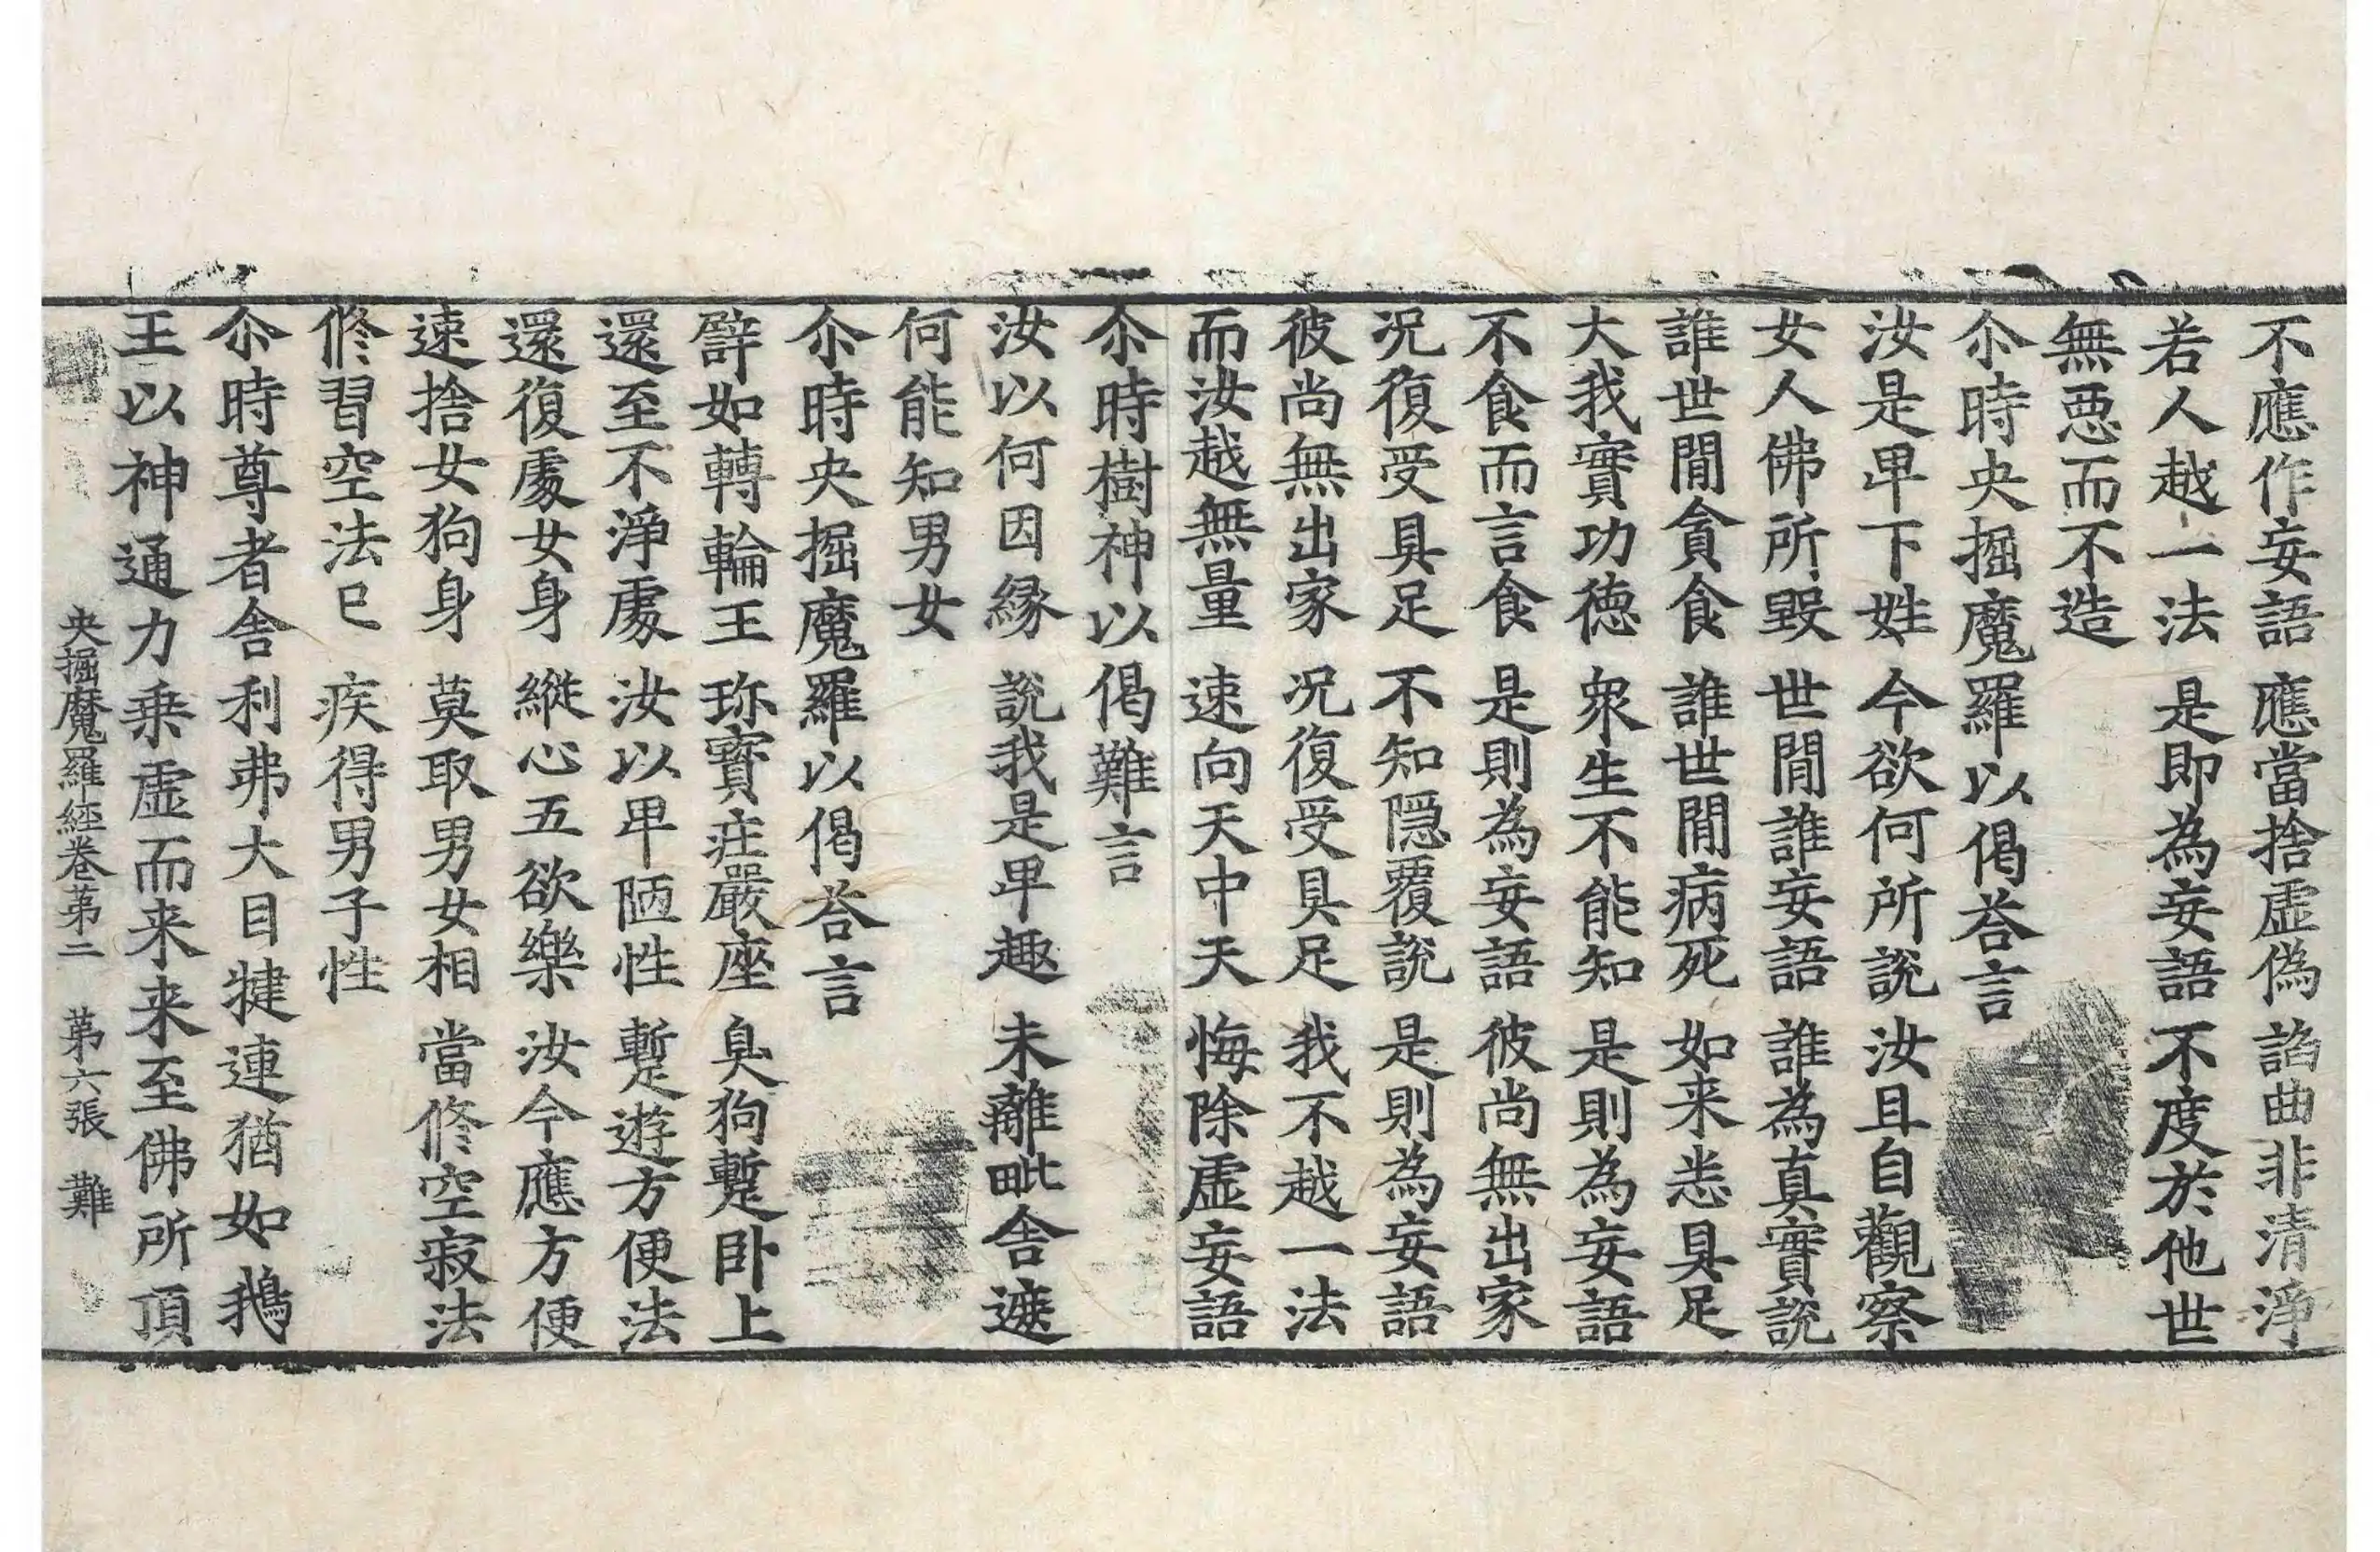 不應作妄語　應當捨虛偽　諂曲非清淨
若人越一法　是即為妄語　不度於他世
無惡而不造
尒時央掘魔羅以偈荅言
汝是卑下姓　今欲何所說　汝且自觀察
女人佛所毀　世閒誰妄語　誰為真實說
誰世閒貪食　誰世閒病死　如来悉具足
大我實功德　衆生不能知　是則為妄語
不食而言食　是則為妄語　彼尚無出家
況復受具足　不知隱覆說　是則為妄語
彼尚無出家　況復受具足　我不越一法
而汝越無量　速向天中天　悔除虛妄語
尒時樹神以偈難言
汝以何因緣　說我是卑趣　未離毗舍遮
何能知男女
尒時央掘魔羅以偈荅言
譬如轉輪王　珎寶莊嚴座　臭狗蹔卧上
還至不淨處　汝以卑陋性　蹔遊方便法
還復處女身　縱心五欲樂　汝今應方便
速捨女狗身　莫取男女相　當修空寂法
修習空法已　疾得男子性
尒時尊者舍利弗大目犍連猶如鵝
王以神通力乘虛而来来至佛所頂
央掘魔羅經卷第二　第六張　難